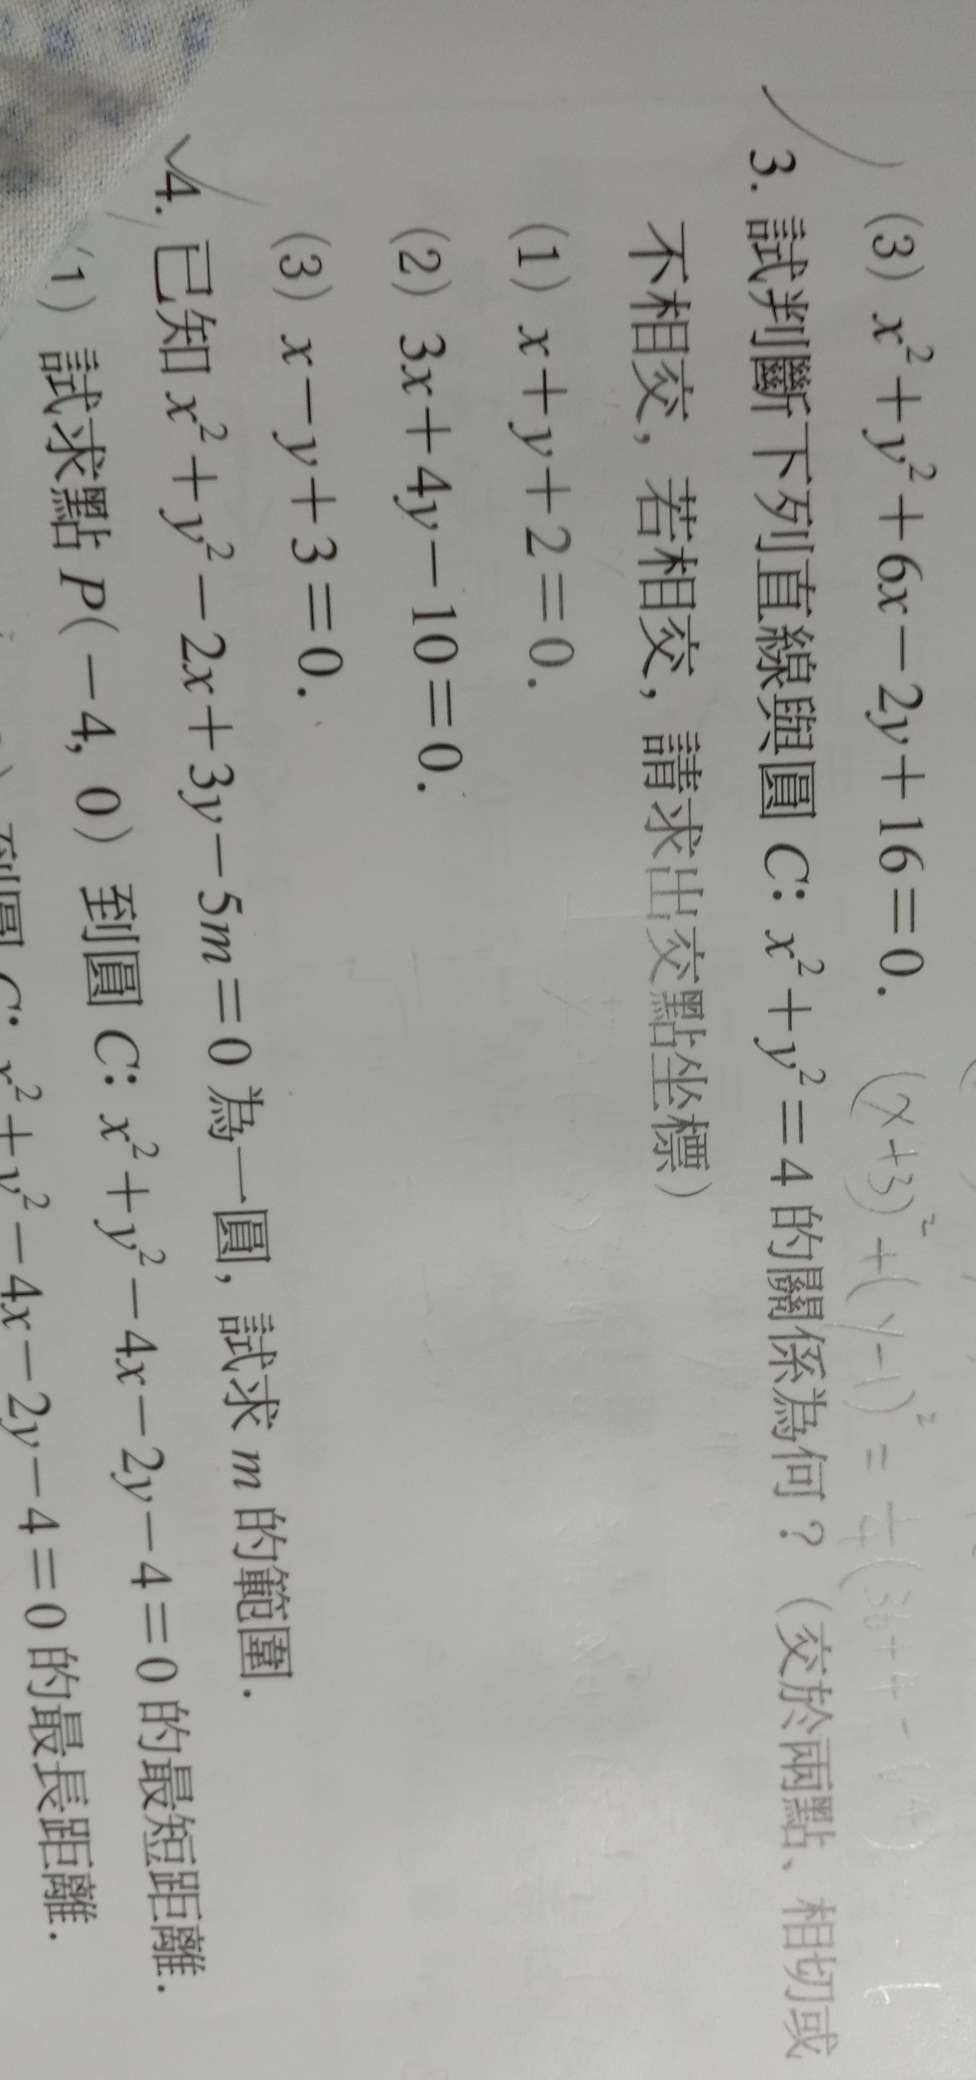 (3) x²+y²+6x−2y+16=0.
(x+3)²+(y−1)²=
3. 試判斷下列直線與圓 C: x²+y²=4 的關係為何？（交於兩點、相切或
不相交，若相交，請求出交點坐標）
(1) x+y+2=0.
(2) 3x+4y−10=0.
(3) x−y+3=0.
4. 已知 x²+y²−2x+3y−5m=0 為一圓，試求 m 的範圍.
1) 試求點 P(−4, 0) 到圓 C: x²+y²−4x−2y−4=0 的最短距離.
到圓 C: x²+y²−4x−2y−4=0 的最長距離.